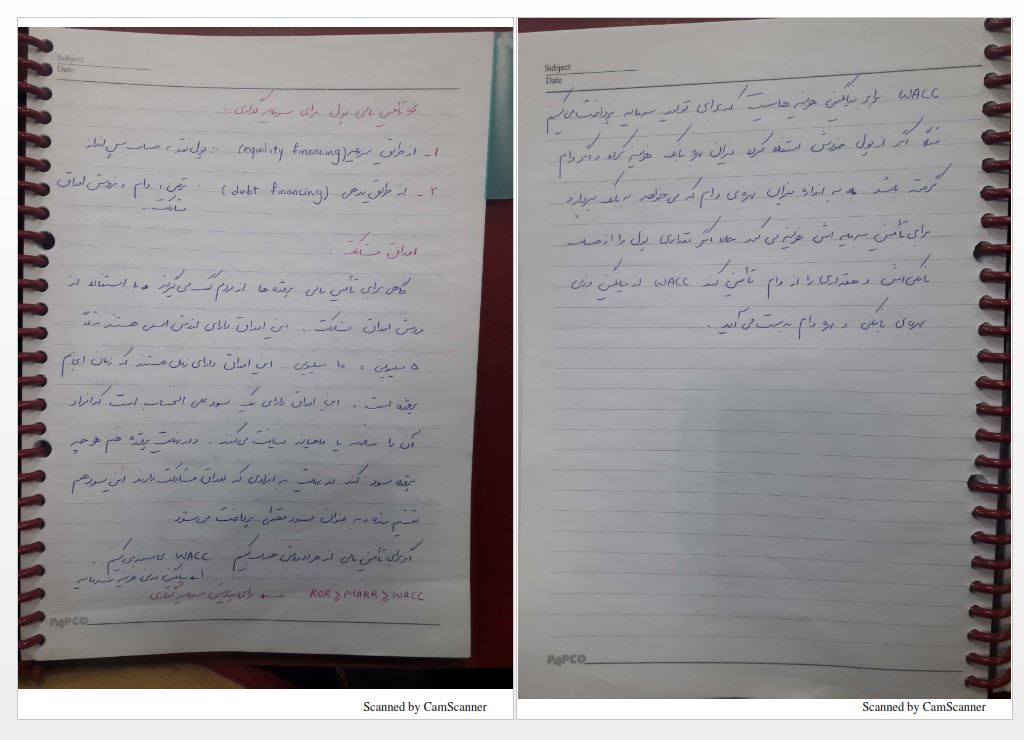 Subject
Date
نحو تأمین مالی پول برای سرمایه گذاری :
۱- از طریق سرمایه (equality financing) : پول نقد ، حساب پس انداز
۲- از طریق بدهی (debt financing) : قرض ، وام ، فروش اوراق
مشارکت .
اوراق مشارکت :
گاهی برای تأمین مالی پروژه ها از مردم کمک می گیرند با استفاده از
فروش اوراق مشارکت . این اوراق دارای ارزش اسمی هستند مثلاً
۵ میلیونی ، ۱۰ میلیونی . این اوراق دارای زمان هستند که زمان انجام
پروژه است . این اوراق دارای یک سود علی الحساب است که افراد
آن را سالانه یا ماهیانه دریافت می کنند . و در نهایت پروژه هم هر چه
پروژه سود کند در نهایت به افرادی که اوراق مشارکت دارند این سود هم
تقسیم شده و به عنوان سود قطعی پرداخت می شود .
اگر برای تأمین مالی از هر دو روش حساب کنیم WACC محاسبه می کنیم .
میانگین وزنی هزینه سرمایه
ROR ⩾ MARR ⩾ WACC ← برای پذیرفتن سرمایه گذاری
PAPCO
Scanned by CamScanner
Subject
Date
WACC برابر میانگین هزینه هاییست که برای تولید سرمایه پرداخت می کنیم
مثلاً اگر از پول خودش استفاده کرده میزان بهره بانک هزینه کرده و اگر وام
گرفته باشد به اندازه میزان بهره ی وام که می خواهد به بانک بپردازد
برای تأمین سرمایه اش هزینه می کند حال اگر مقداری پول را از حساب
بانکی اش و مقداری را از وام تأمین کند WACC از میانگین وزنی
بهره ی بانکی و بهره وام بدست می آید .
PAPCO
Scanned by CamScanner